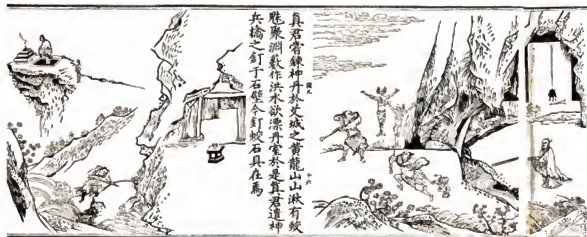 真君嘗鍊神丹於艾城之黃龍山山湫有蛟
魅聚淵藪作洪水欲漂丹室於是真君遣神
兵擒之釘于石壁今釘蛟石具在焉